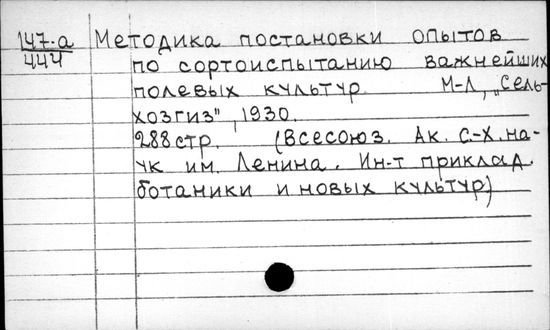 147-а Методика постановки опытов
444 по сортоиспытанию важнейших
полевых культур М-Л, „Сель-
хозгиз", 1930.
288 стр. (Всесоюз. Ак. С.-Х. на-
ук им. Ленина. Ин-т приклад.
ботаники и новых культур)